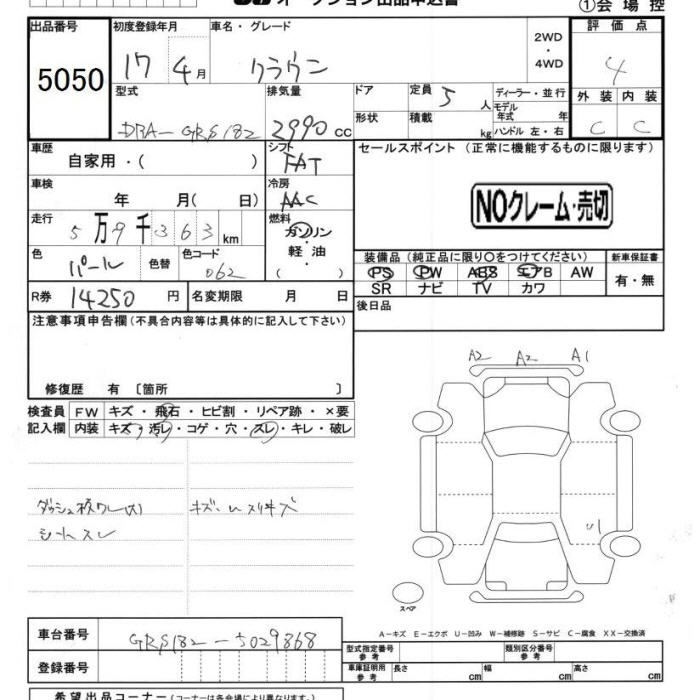 オークション出品申込書
①会場控
出品番号 初度登録年月 車名・グレード 2WD・4WD 評価点
5050 17 4月 クラウン 4
型式 排気量 ドア 定員 5人 ディーラー・並行 外装 内装
DBA-GRS182 2990cc 形状 積載 kg モデル年式 年 ハンドル 左・右 C C
車歴 シフト セールスポイント(正常に機能するものに限ります)
自家用・( ) FAT
車検 年 月(日) 冷房 AAC NOクレーム・売切
走行 5万9千363km 燃料 ガソリン
色 パール 色替 色コード 062 軽油 ( )
装備品(純正品に限り○をつけてください) 新車保証書
PS PW ABS エアB AW 有・無
SR ナビ TV カワ
R券 14250円 名変期限 月 日 後日品
注意事項申告欄(不具合内容等は具体的に記入して下さい)
修復歴 有 〔箇所 〕
A2 A2 A1
検査員 FW キズ・飛石・ヒビ割・リペア跡・×要
記入欄 内装 キズ・汚レ・コゲ・穴・スレ・キレ・破レ
ダッシュ板ワレ(大) キズ・
シートスレ
U1
スペア
A-キズ E-エクボ U-凹み W-補修跡 S-サビ C-腐食 XX-交換済
車台番号 GRS182-5029868
型式指定番号 参考 類別区分番号 参考
登録番号 車庫証明用 参考 長さ cm 幅 cm 高さ cm
希望出品コーナー(コーナーは各会場により異なります)